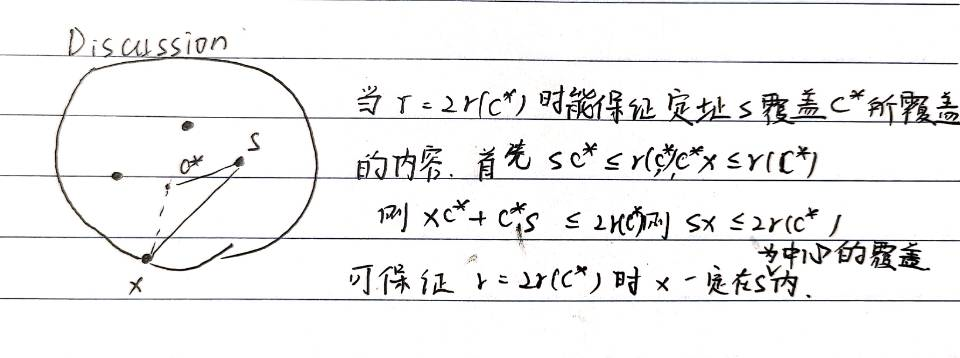 Discussion
S
C*
x
当 r = 2r(C*) 时能保证定址 S 覆盖 C* 所覆盖
的内容. 首先 SC* ≤ r(C*), C*x ≤ r(C*)
则 xC* + C*S ≤ 2r(C*) 则 Sx ≤ 2r(C*)
为中心的覆盖
可保证 r = 2r(C*) 时 x 一定在S内.